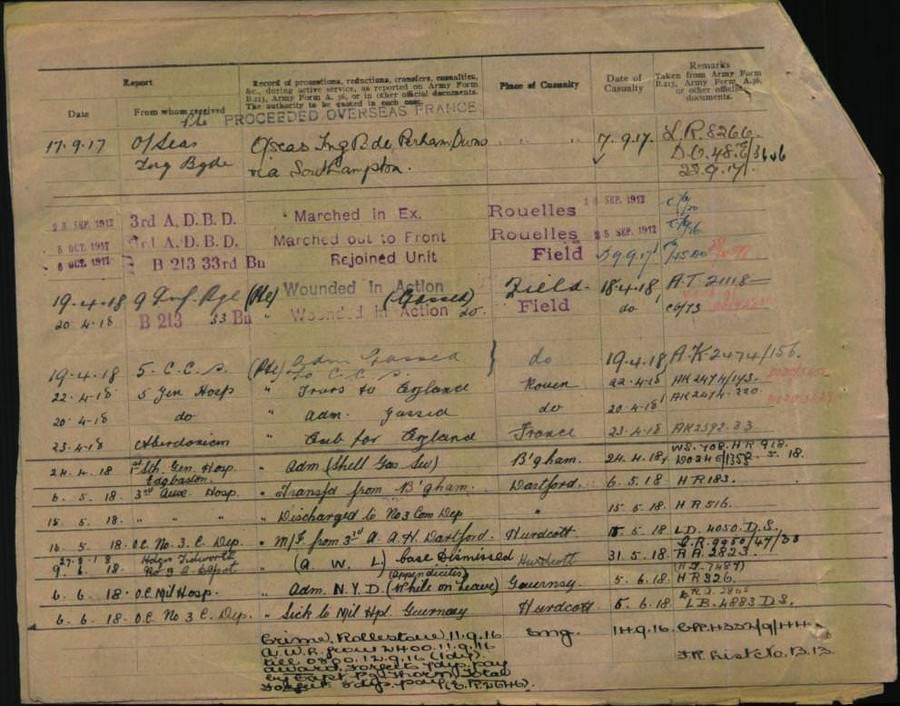 Report
Record of promotions, reductions, transfers, casualties,
&c., during active service, as reported on Army Form
B.213, Army Form A.36, or in other official documents.
The authority to be quoted in each case.
Place of Casualty
Date of
Casualty
Remarks
Taken from Army Form
B.213, Army Form A.36,
or other official
documents.
Date From whom received
PROCEEDED OVERSEAS FRANCE
17.9.17 O/Seas O/seas Tng Bde, Perham Downs " " " 17.9.17. L.R. 8266
Tng Bgde via Southampton. D.O. 48
22.9.17.
SEP. 1917 3rd A.D.B.D. Marched in Ex. Rouelles SEP. 1917
5 OCT. 1917 3rd A.D.B.D. Marched out to Front Rouelles 25 SEP. 1917
6 OCT. 1917 B 213 33rd Bn Rejoined Unit Field
19.4.18 9 Inf. Bge (Pte) Wounded In Action (Gassed) Field. 18.4.18 A.T. 2118
20.4.18 B 213 33 Bn " Wounded In Action Field do
19.4.18 5. C.C.S. (Pte) Adm Gassed do 19.4.18 A.K 2474/156.
To C.C.S.
22.4.18 5 Gen Hosp " Trans to England Rouen 22.4.18 AK 2474/193.
20.4.18 do " Adm. Gassed do 20.4.18 AK 2474.220
23.4.18 Aberdonian " Emb for England France 23.4.18 AK 2592.33
24.4.18 1st Sth. Gen. Hosp. " Adm (Shell Gas Sev) B'gham. 24.4.18
Edgbaston.
6.5.18. 3rd Aux. Hosp. " Transfd from B'gham. Dartford. 6.5.18 HR 183.
15.5.18. " " " " Discharged to No 3 Com Dep " 15.5.18 HR 516.
16.5.18. O.C. No. 3. C. Dep. " M/I from 3rd A. A.H. Dartford. Hurdcott 5.18 L.D. 4050. D.S.
Hdqrs Tidworth " (A. W. L) case Dismissed Hurdcott 31.5.18 R.A. 2823.
9.6.18. (appendicitis)
6.6.18. O.C. Mil Hosp. " Adm. N.Y.D. (While on Leave) Guernsy 5.6.18 HR 326.
6.6.18. O.C. No 3 C. Dep. " Sick to Mil Hpl. Guernsey Hurdcott 5.6.18. L.B. 4883 D.S.
Crime, Rollestone 11.9.16 Eng. 14.9.16
A.W.L. from 2400. 11.9.16
till 0800. 12.9.16 (1 day)
award. Forfeits 7 days pay
by Capt Thorn. Total
forfeit 8 dys. pay